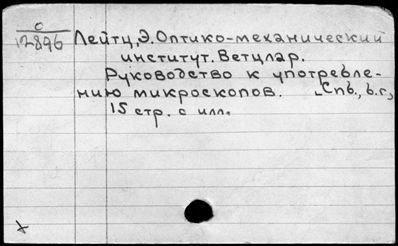 0
12896
Лейтц, Э. Оптико-механический
институт. Ветцлар.
Руководство к употребле-
нию микроскопов. Спб., б.г.,
15 стр. с илл.